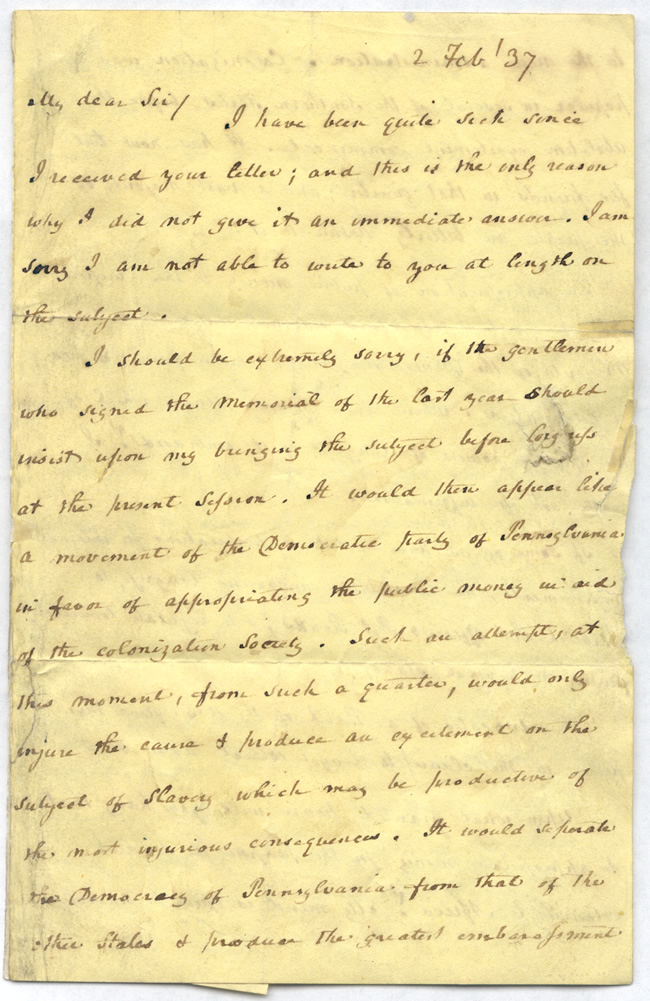 2 Feb '37
My dear Sir/
I have been quite sick since
I received your letter; and this is the only reason
why I did not give it an immediate answer. I am
sorry I am not able to write to you at length on
the subject.
I should be extremely sorry, if the gentlemen
who signed the Memorial of the last year should
insist upon my bringing the subject before Congress
at the present Session. It would then appear like
a movement of the Democratic party of Pennsylvania
in favor of appropriating the public money in aid
of the colonization Society. Such an attempt, at
this moment, from such a quarter, would only
injure the cause & produce an excitement on the
subject of slavery which may be productive of
the most injurious consequences. It would seperate
the Democracy of Pennsylvania from that of the
other States & produce the greatest embarassment